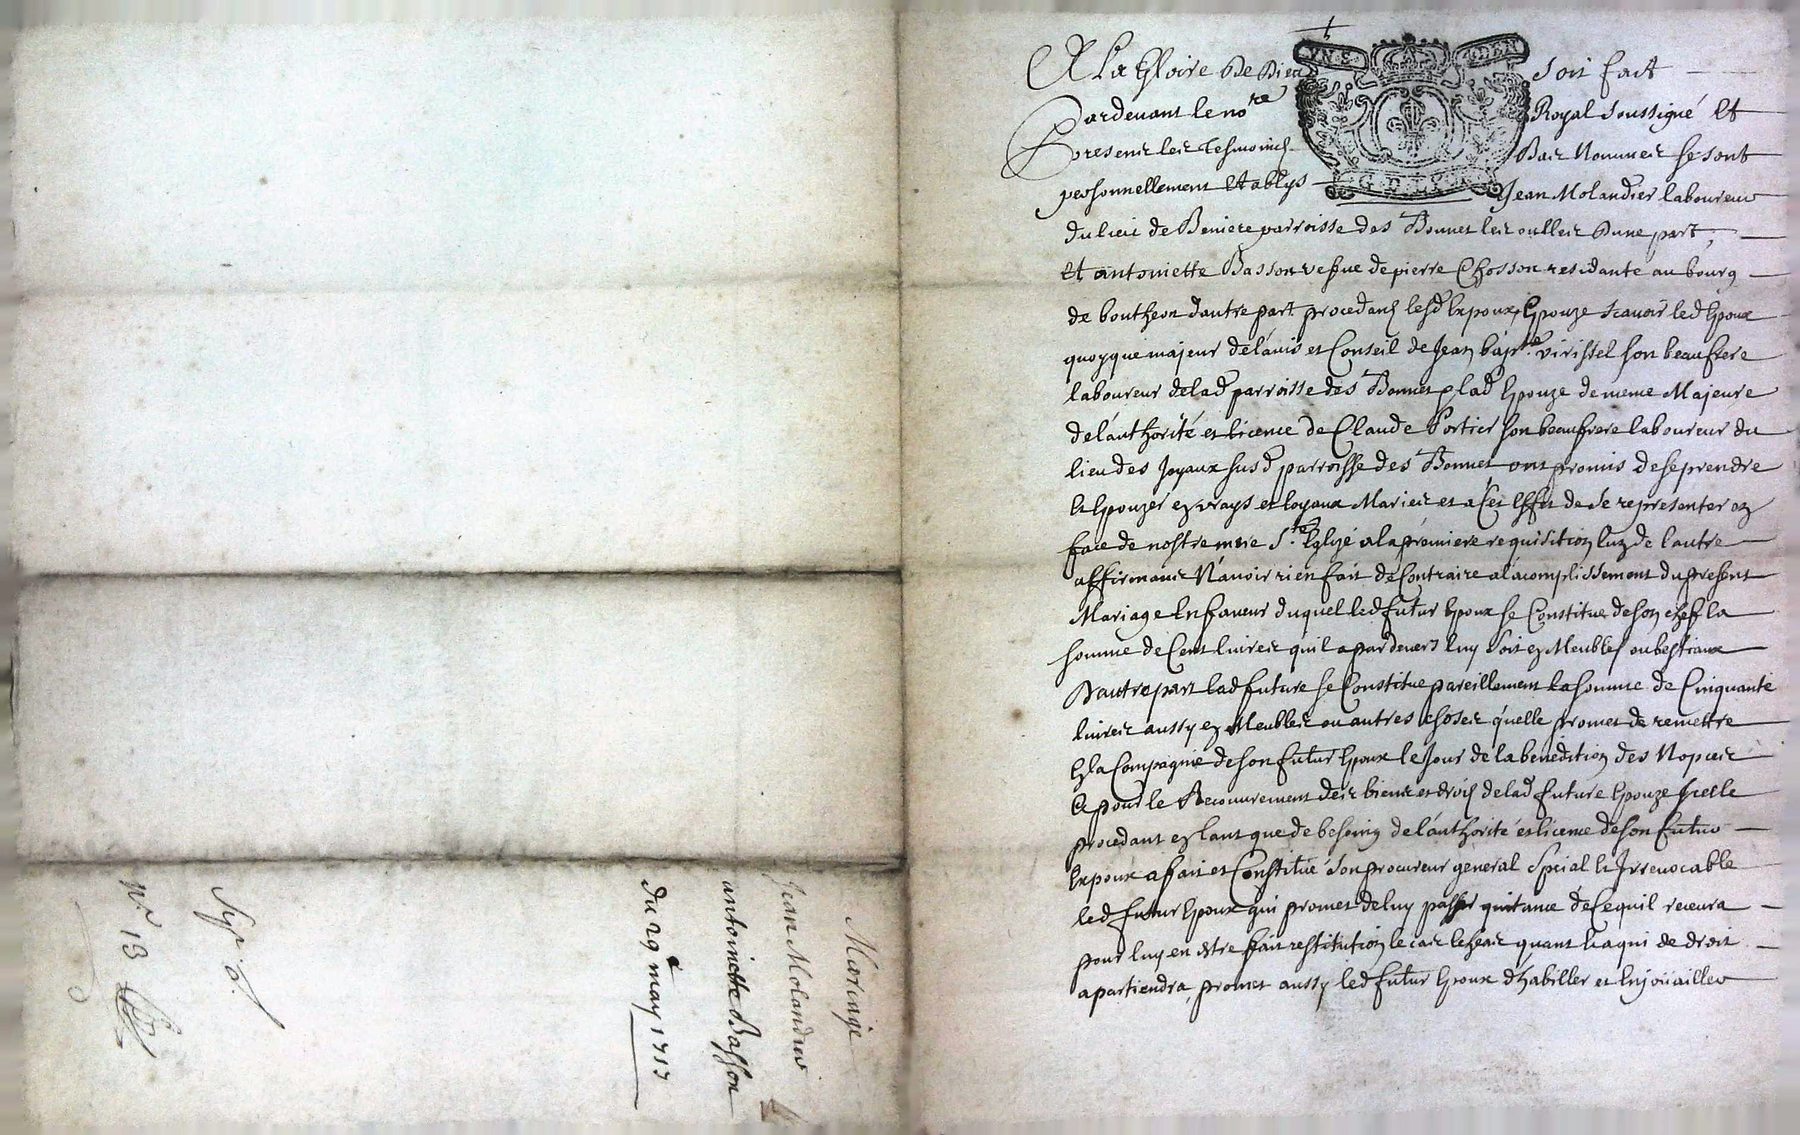 A La Gloire De Dieu Soit fait
Pardevant le no.re Royal Soussigné Et
presens les Tesmoins Bas Nommes se sont
personnellement Etablys Jean Molandier laboureur
du lieu de Beniere parroisse des Bonnet les oulles Dune part,
Et antoinette Basson vesue de pierre Chosson residante au bourg
de boutheon dautre part procedans lesd Expoux, Epouze scavoir led Epoux
quoyque majeur de lavis et Conseil de Jean bap.te virissel son beaufrere
laboureur de lad parroisse des Bonnet & lad Epouze de meme Majeure
de lauthorité et licence de Claude Portier son beaufrere laboureur du
lieu des Joyaux susd parroisse des Bonnet ont promis de se prendre
Et Epouzer en vrays et loyaux Maries et a Cet Effet de se representer en
face de nostre mere S.te Eglize a la premiere requisition lun de lautre
affirmants N'avoir rien fait de Contraire a lacomplissement du present
Mariage En faveur duquel led futur Epoux se Constitue de son chef la
somme de Cent livres quil a pardevers luy soit en Meubles ou bestiaux
D'autre part lad future se Constitue pareillement la somme de Cinquante
livres aussy en Meubles ou autres choses qu'elle promet de remettre
En la Compagnie de son futur Epoux le Jour de la benediction des Nopces
Et pour le Recouvrement des biens et droits de lad future Epouze Icelle
procedant en tant que de besoing de lauthorité et licence de son futur
Expoux a fait et Constitué son procureur general Special Et Irrevocable
led futur Epoux qui promet de luy passer quitance de Ce quil recevra
pour luy en estre fait restitution le cas Echeant quant Et a qui de droit
apartiendra, promet aussy led futur Epoux d'habiller et Enjouailler
Mariage
Jean Molandier
antoinette Basson
du 29 may 1713
N.º 13